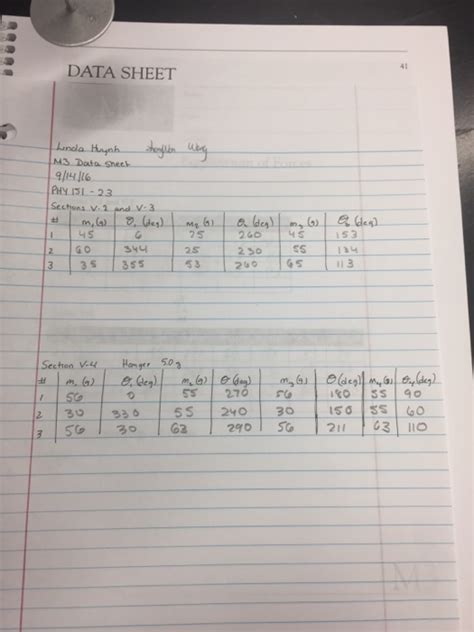 DATA SHEET 41
Linda Huynh Wang
M3 Data Sheet
9/14/16
PHY 151 - 23
Sections V-2 and V-3
# m₁(g) θ₁(deg) m₂(g) θ₂(deg) m₃(g) θ₃(deg)
1 45 6 25 260 45 153
2 60 344 25 230 55 134
3 35 355 53 260 65 113
Section V-4 Hanger 50g
# m₁(g) θ₁(deg) m₂(g) θ(deg) m₃(g) θ(deg) m₄(g) θ₄(deg)
1 56 0 55 270 56 180 55 90
2 30 330 55 240 30 150 55 60
3 56 30 63 290 56 211 63 110
M3